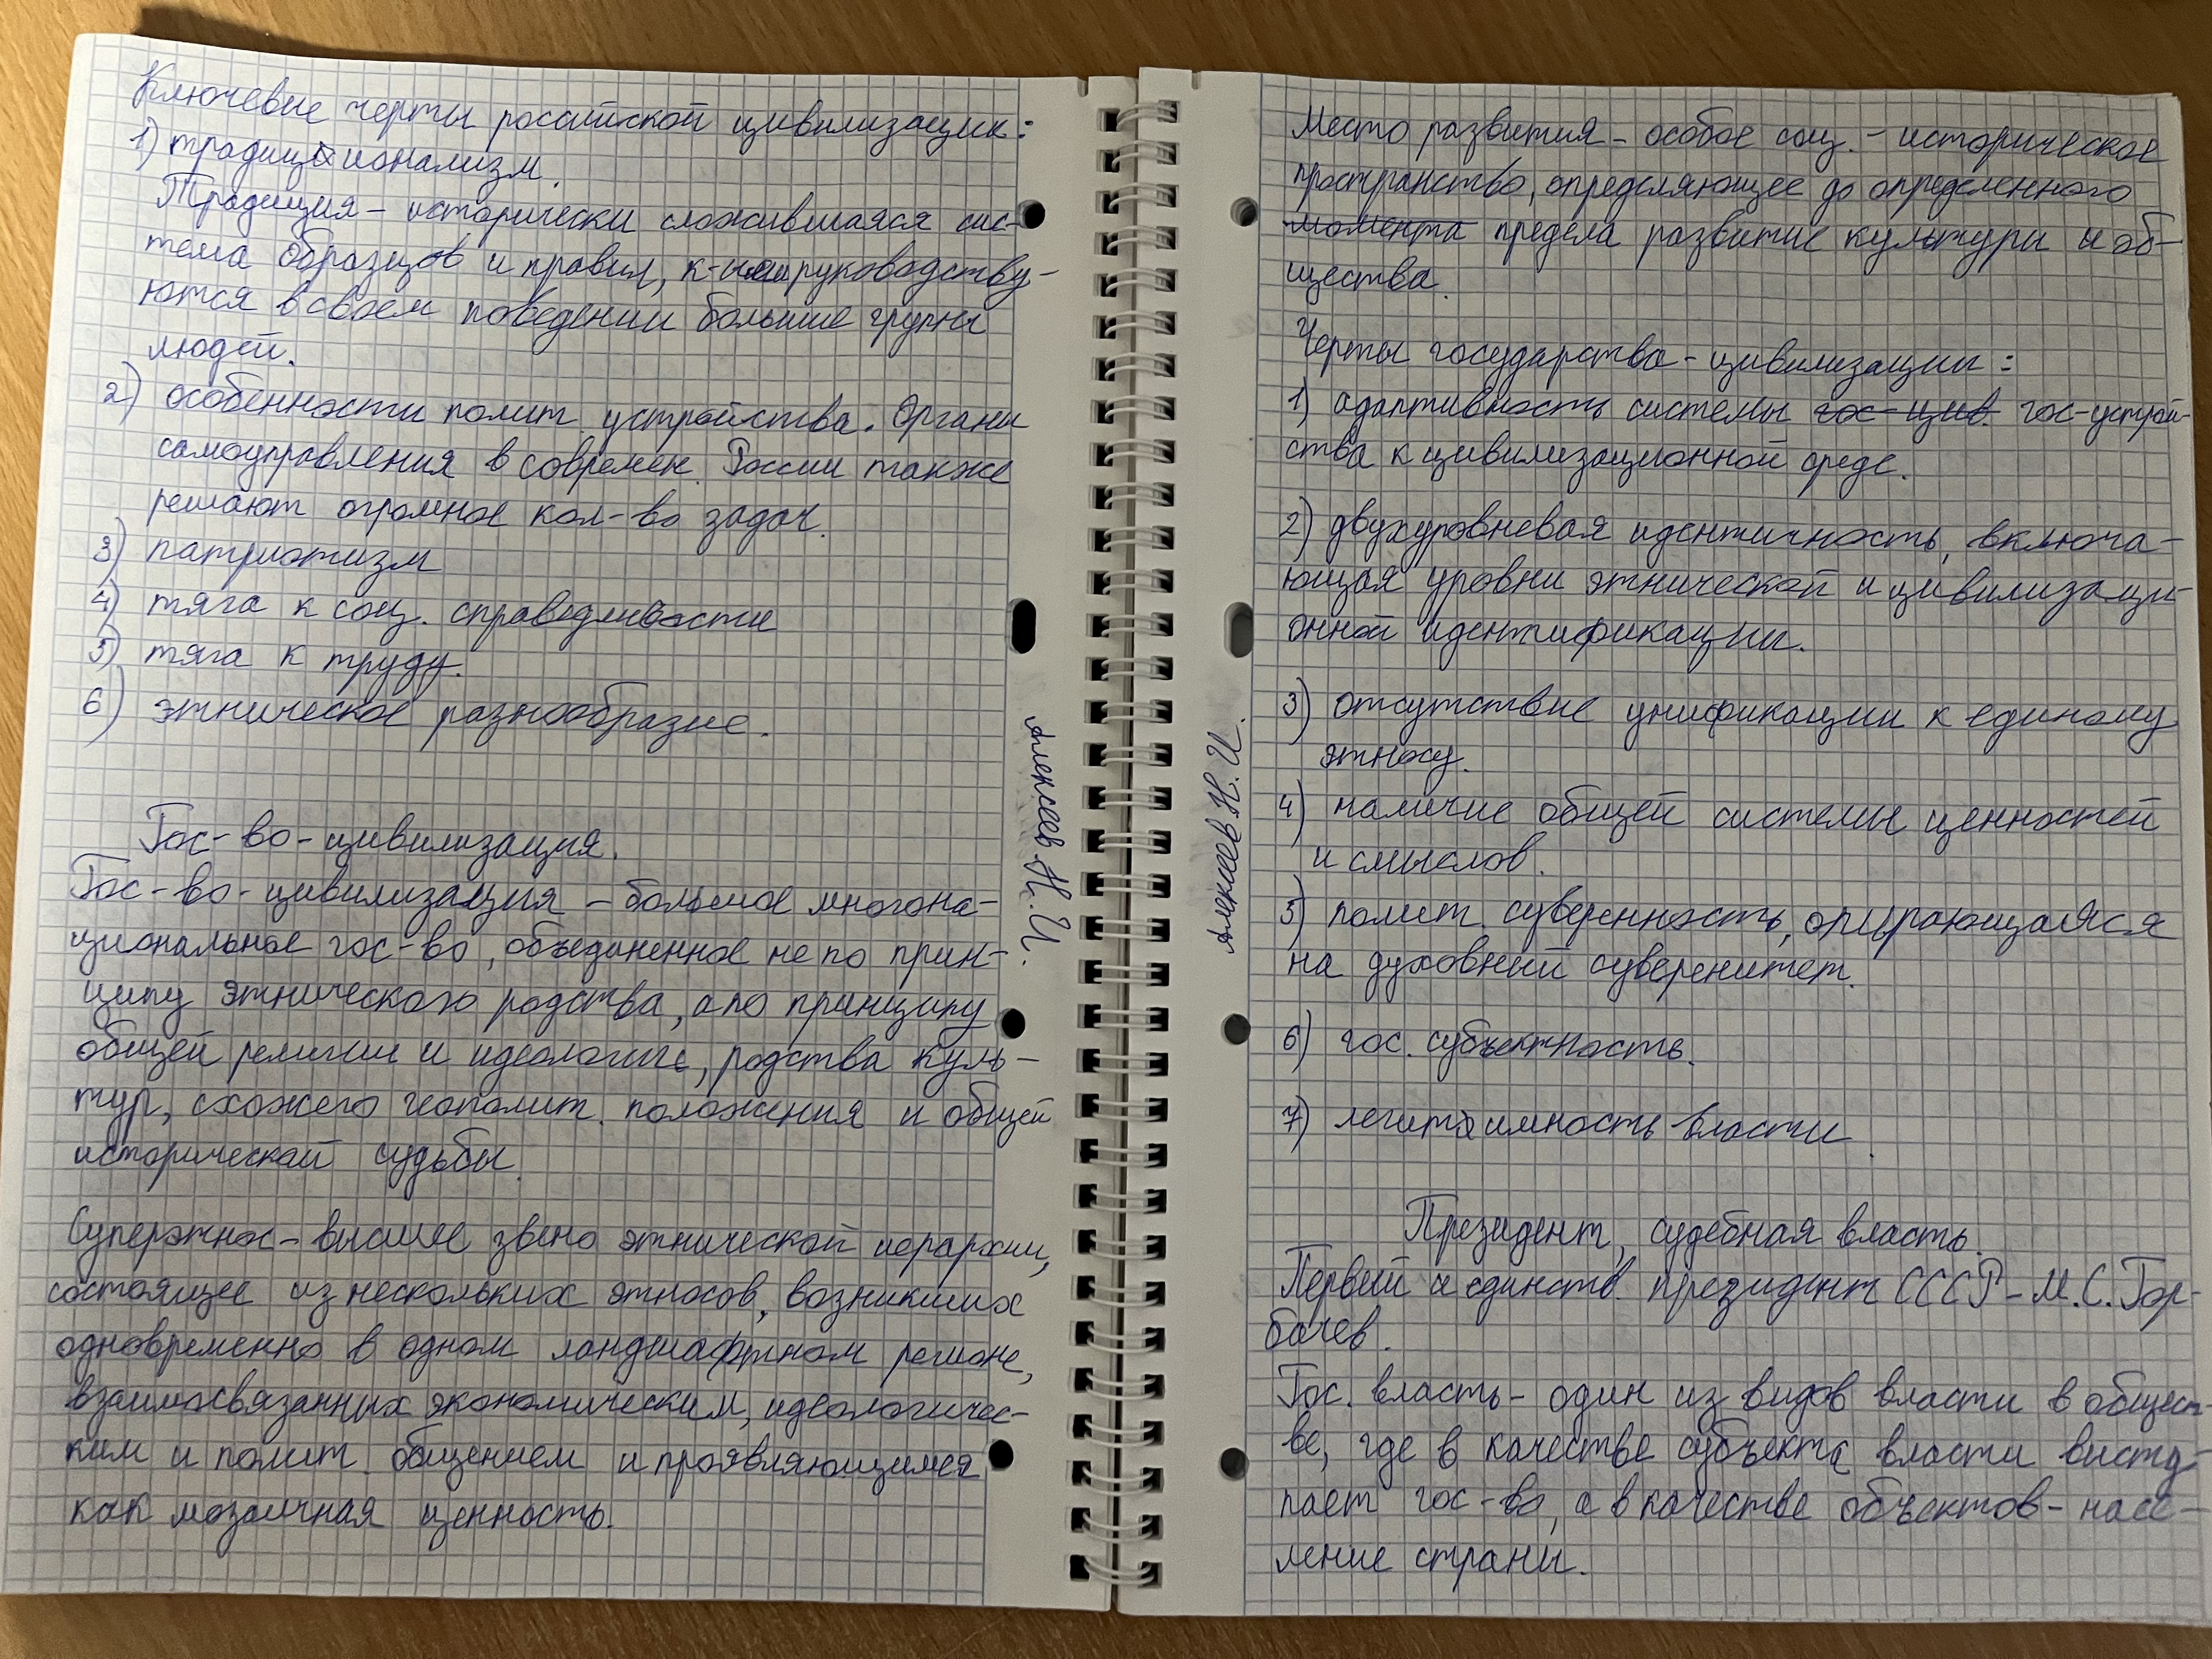 Ключевые черты российской цивилизации:
1) традиционализм.
Традиция - исторически сложившаяся сис-
тема образцов и правил, к-ми руководству-
ются в своем поведении большие группы
людей.
2) особенности полит. устройства. Органы
самоуправления в современ. России также
решают огромное кол-во задач.
3) патриотизм
4) тяга к соц. справедливости
5) тяга к труду.
6) этническое разнообразие.
Гос-во-цивилизация.
Гос-во-цивилизация - большое многона-
циональное гос-во, объединенное не по прин-
ципу этнического родства, а по принципу
общей религии и идеологии, родства куль-
тур, схожего геополит. положения и общей
исторической судьбы.
Суперэтнос - высшее звено этнической иерархии,
состоящее из нескольких этносов, возникших
одновременно в одном ландшафтном регионе,
взаимосвязанных экономическим, идеологичес-
ким и полит. общением и проявляющимся
как мозаичная ценность.
Алексеев Н. И.
Алексеев Н. И.
Место развития - особое соц. - историческое
пространство, определяющее до определенного
момента предела развитие культуры и об-
щества.
Черты государства - цивилизации:
1) адаптивность системы гос-цив. гос-устрой-
ства к цивилизационной среде.
2) двухуровневая идентичность, включа-
ющая уровни этнической и цивилизаци-
онной идентификации.
3) отсутствие унификации к единому
этносу.
4) наличие общей системы ценностей
и смыслов.
5) полит. суверенность, опирающаяся
на духовный суверенитет.
6) гос. субъектность.
7) легитимность власти.
Президент, судебная власть.
Первый и единств. президент СССР - М.С. Гор-
бачев.
Гос. власть - один из видов власти в общест-
ве, где в качестве субъекта власти высту-
пает гос-во, а в качестве объектов - насе-
ление страны.